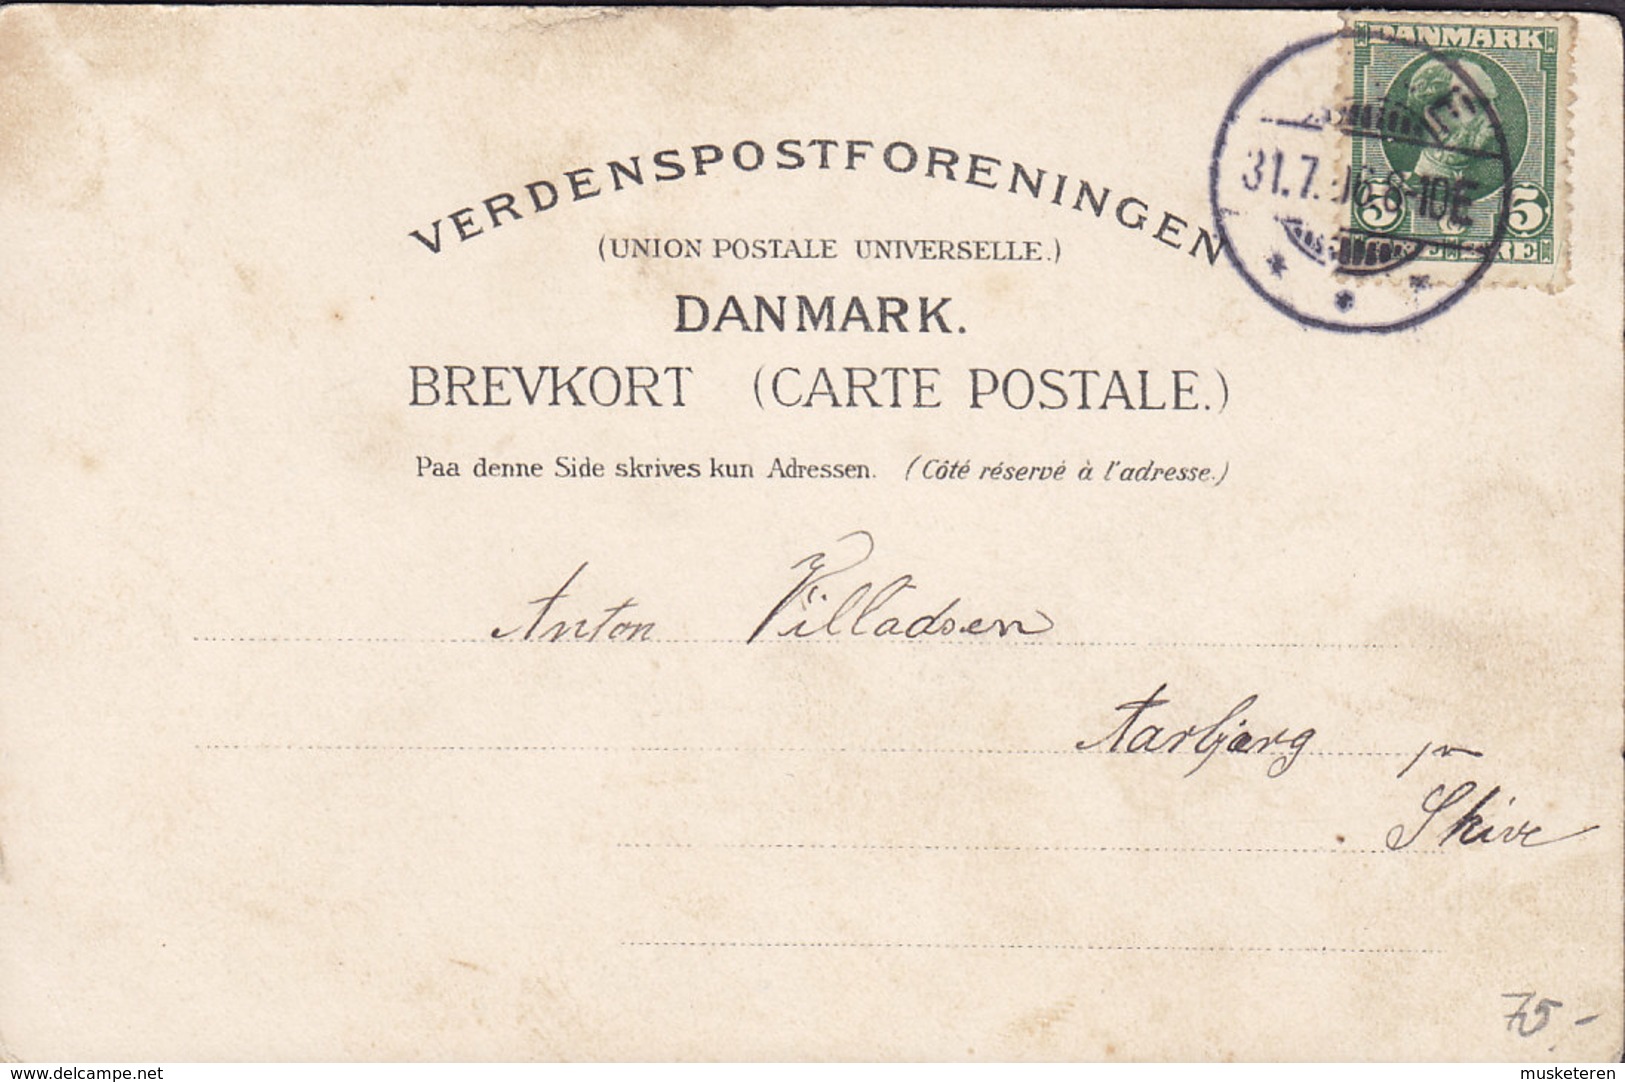 DANMARK
31.7.06.8-10E
5 5
VERDENSPOSTFORENINGEN
(UNION POSTALE UNIVERSELLE.)
DANMARK.
BREVKORT (CARTE POSTALE.)
Paa denne Side skrives kun Adressen. (Côté réservé à l'adresse.)
Anton Villadsen
Aarbjærg pr
Skive
75.-
www.delcampe.net
musketeren